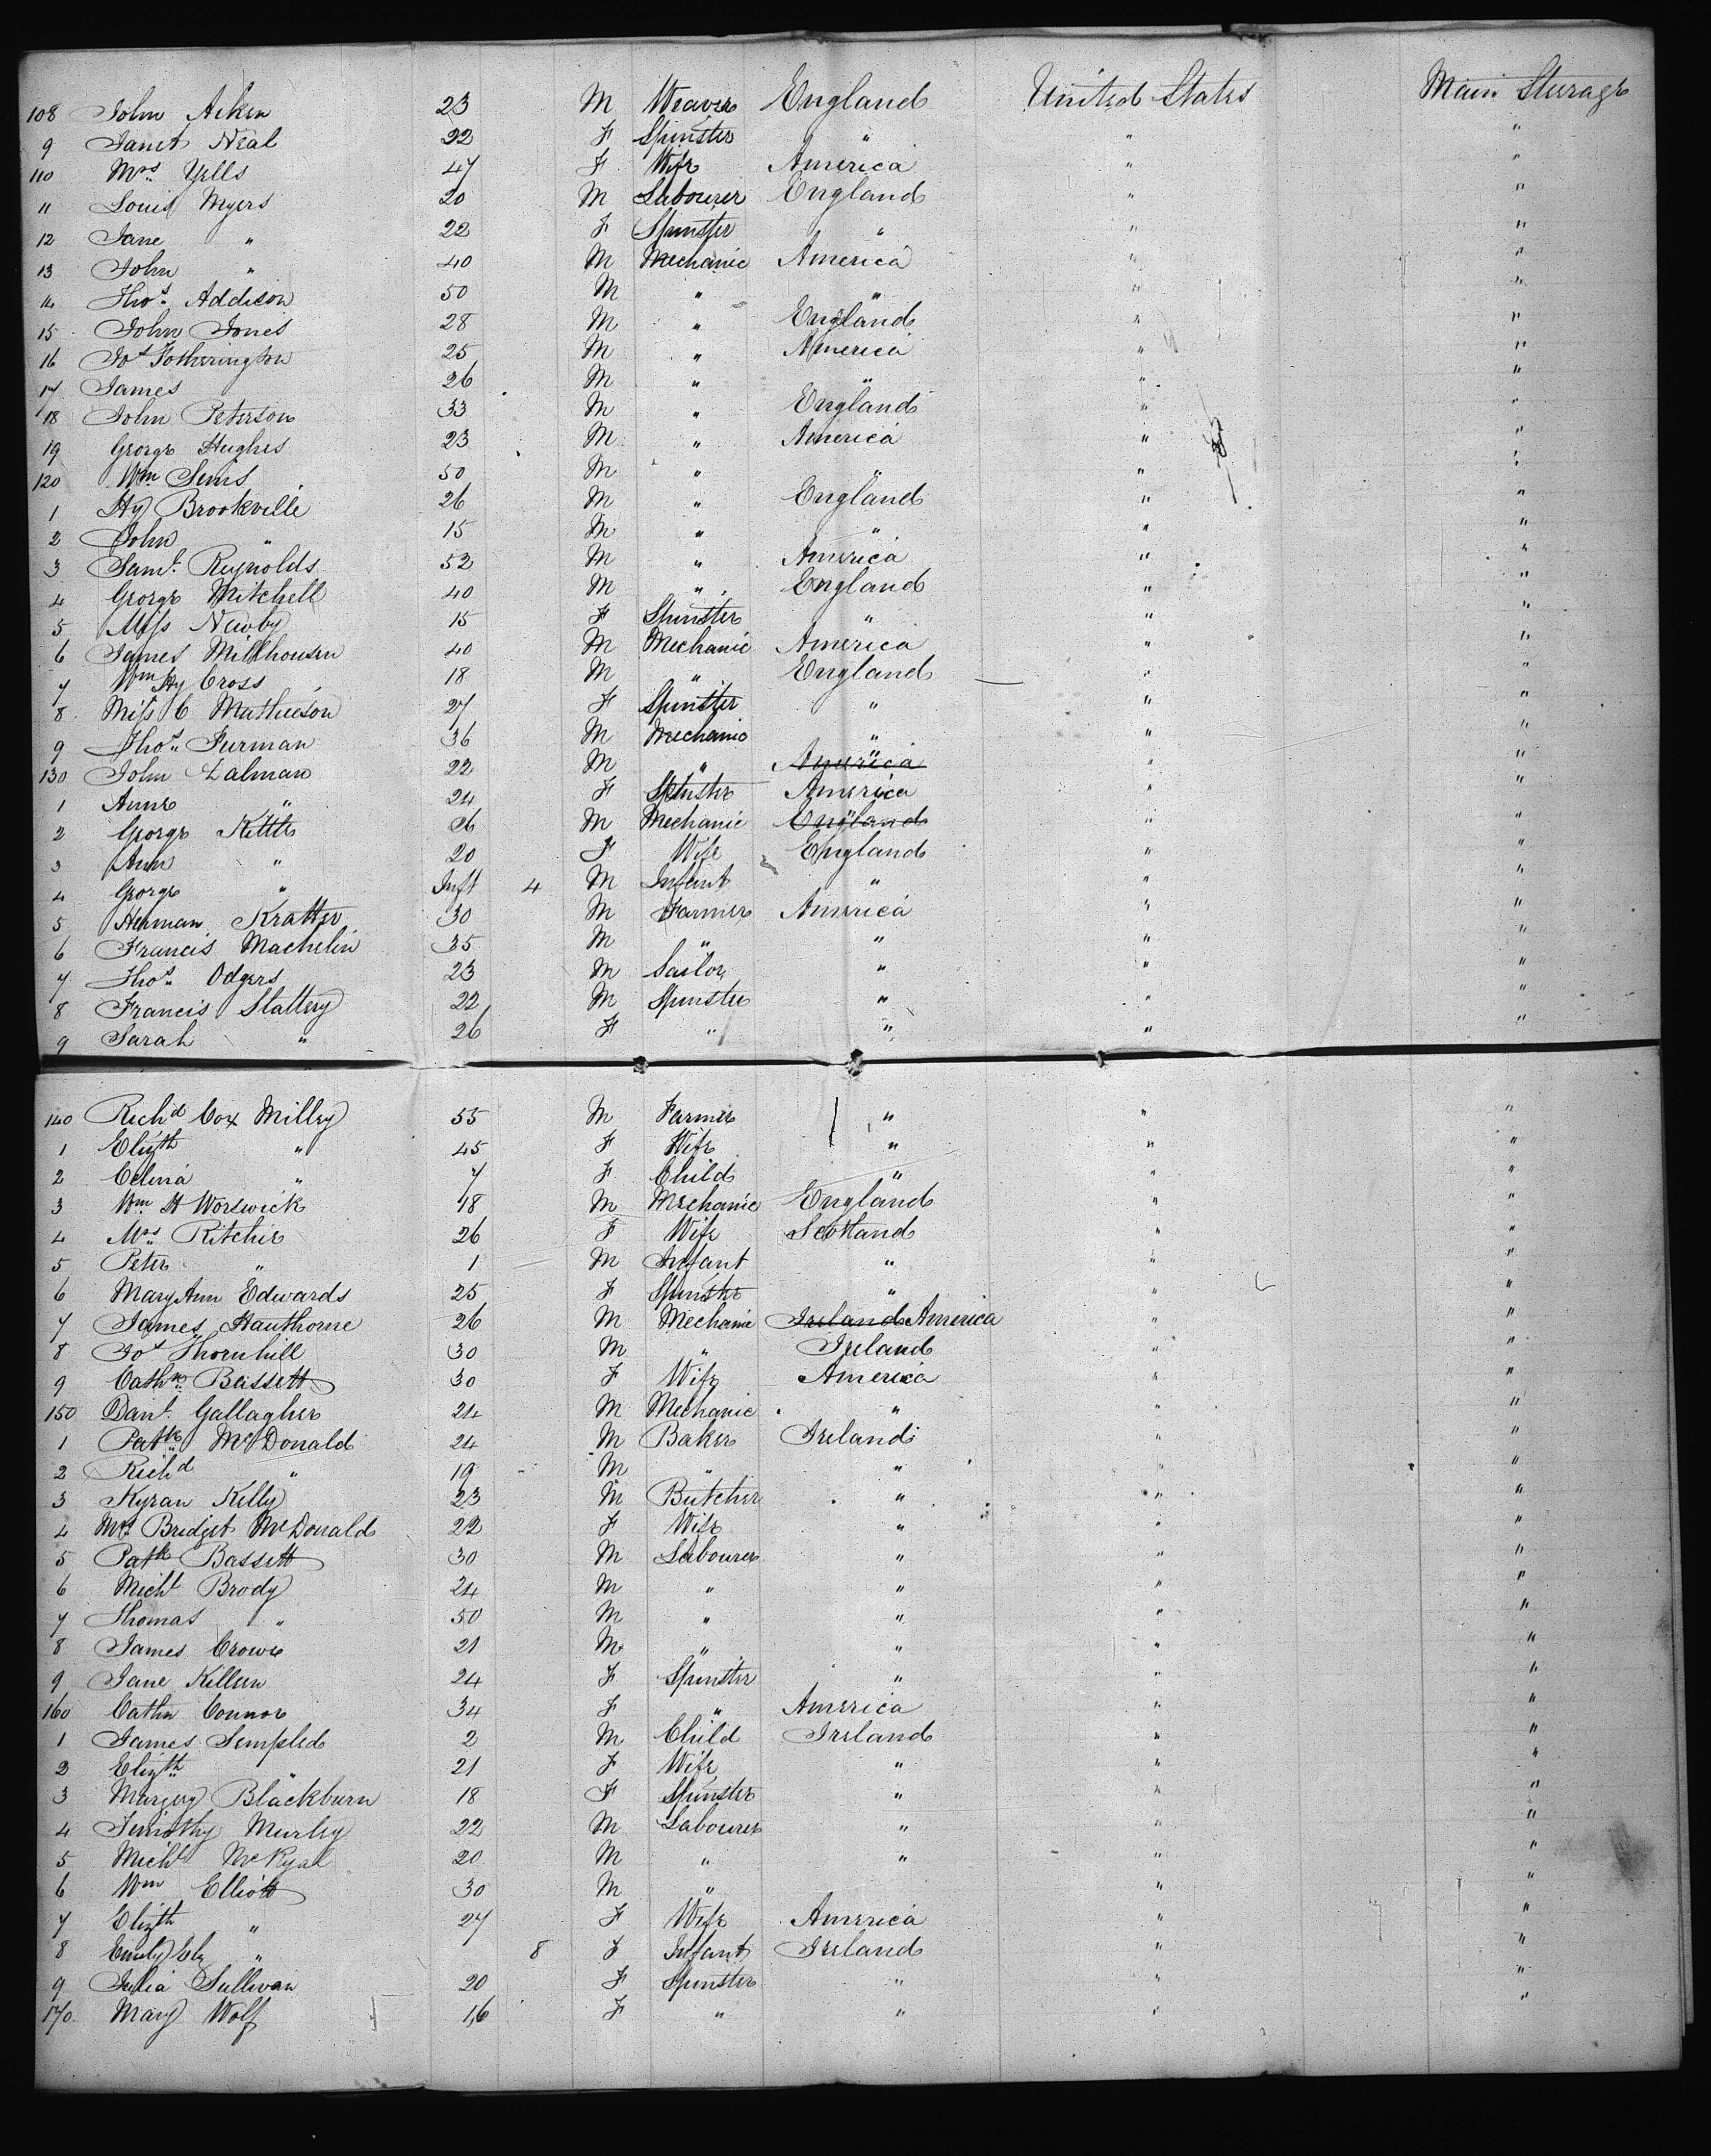 108 John Aiken 23 M Weaver England United States Main Steerage
9 Janet Neal 22 F Spinster " " "
110 Mrs Yells 47 F Wife America " "
11 Louis Myers 20 M Labourer England " "
12 Jane " 22 F Spinster " " "
13 John " 40 M Mechanic America " "
14 Thos Addison 50 M " " " "
15 John Jones 28 M " England " "
16 Jos Fotherington 25 M " America " "
17 James 26 M " " " "
18 John Peterson 33 M " England " "
19 George Hughes 23 M " America " "
120 Wm Sims 50 M " " " "
1 Hy Brookville 26 M " England " "
2 John " 15 M " " " "
3 Saml Reynolds 52 M " America " "
4 George Mitchell 40 M " England " "
5 Miss Newby 15 F Spinster " " "
6 James Millhousen 40 M Mechanic America " "
7 Wm Hy Cross 18 M " England " "
8 Miss C Mathieson 27 F Spinster " " "
9 Thos Furman 36 M Mechanic " " "
130 John Dalman 22 M " America " "
1 Anne " 24 F Spinster America " "
2 George Kettle 26 M Mechanic England " "
3 Ann " 20 F Wife England " "
4 George " Inft 4 M Infant " " "
5 Herman Kratter 30 M Farmer America " "
6 Francis Machelin 35 M " " " "
7 Thos Odgers 23 M Sailor " " "
8 Francis Slattery 22 M Spinster " " "
9 Sarah " 26 F " " " "
140 Richd Cox Milley 55 M Farmer " " "
1 Elizth " 45 F Wife " " "
2 Celina " 7 F Child " " "
3 Wm H Worswick 18 M Mechanic England " "
4 Mrs Ritchie 26 F Wife Scotland " "
5 Peter " 1 M Infant " " "
6 Mary Ann Edwards 25 F Spinster " " "
7 James Hauthorne 26 M Mechanic Ireland America " "
8 Jos Thornhill 30 M " Ireland " "
9 Cathne Bassett 30 F Wife America " "
150 Danl Gallagher 24 M Mechanic " " "
1 Patk McDonald 24 M Baker Ireland " "
2 Richd " 19 M " " " "
3 Kyran Kelly 23 M Butcher " " "
4 Mrs Bridget McDonald 22 F Wife " " "
5 Patk Bassett 30 M Labourer " " "
6 Michl Brody 24 M " " " "
7 Thomas " 50 M " " " "
8 James Crowe 21 M " " " "
9 Jane Killeen 24 F Spinster " " "
160 Cathn Connor 34 F " America " "
1 James Sempled 2 M Child Ireland " "
2 Elizth " 21 F Wife " " "
3 Margery Blackburn 18 F Spinster " " "
4 Timothy Murley 22 M Labourer " " "
5 Michl McRyal 20 M " " " "
6 Wm Elliott 30 M " " "
7 Elizth " 27 F Wife America " "
8 Emily Elz " 8 F Infant Ireland " "
9 Julia Sullivan 20 F Spinster " " "
170 Mary Wolf 16 F " " " "